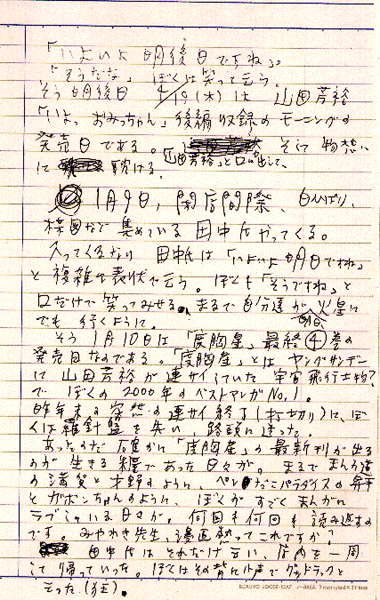 「いよいよ明後日ですね。」
「そうだな」ぼくは笑って云う。
そう明後日 4/19(木)は 山田芳裕
「いよっ おみっちゃん」後編収録のモーニングの
発売日である。「山田芳裕」と口に出して、そして物想い
に耽ける。
1月9日、閉店間際、
集めている田中氏がやってくる。
入ってくるなり 田中氏は「いよいよ明日ですね」
と複雑な表状で云う。ぼくも「そうですね」と
口だけで笑ってみせる。まるで自分達が火星に
でも行くように。
そう1月10日は「度胸星」最終④巻の
発売日なのである。「度胸星」とは ヤングサンデー
に山田芳裕が連サイしていた 宇宙飛行士物?
で ぼくの2000年のベストマンガNo.1。
昨年末の突然の連サイ終了(打切り)に、ぼ
くは羅針盤を失い、路頭に迷った。
あったのだ 確かに「度胸星」の最新刊が出る
のが 生きる糧であった日々が。まるで まんが道
の満賀と才野のように、
ぼくが すごく まんがに
ラブしている日々が。何回も何回も読み返すの
です。みやわき先生、漫画熱ってこれですか?
田中氏は それだけ云い、店内を一周
して帰っていった。ぼくはその背に小声でグッドラックと
云った(狂)。